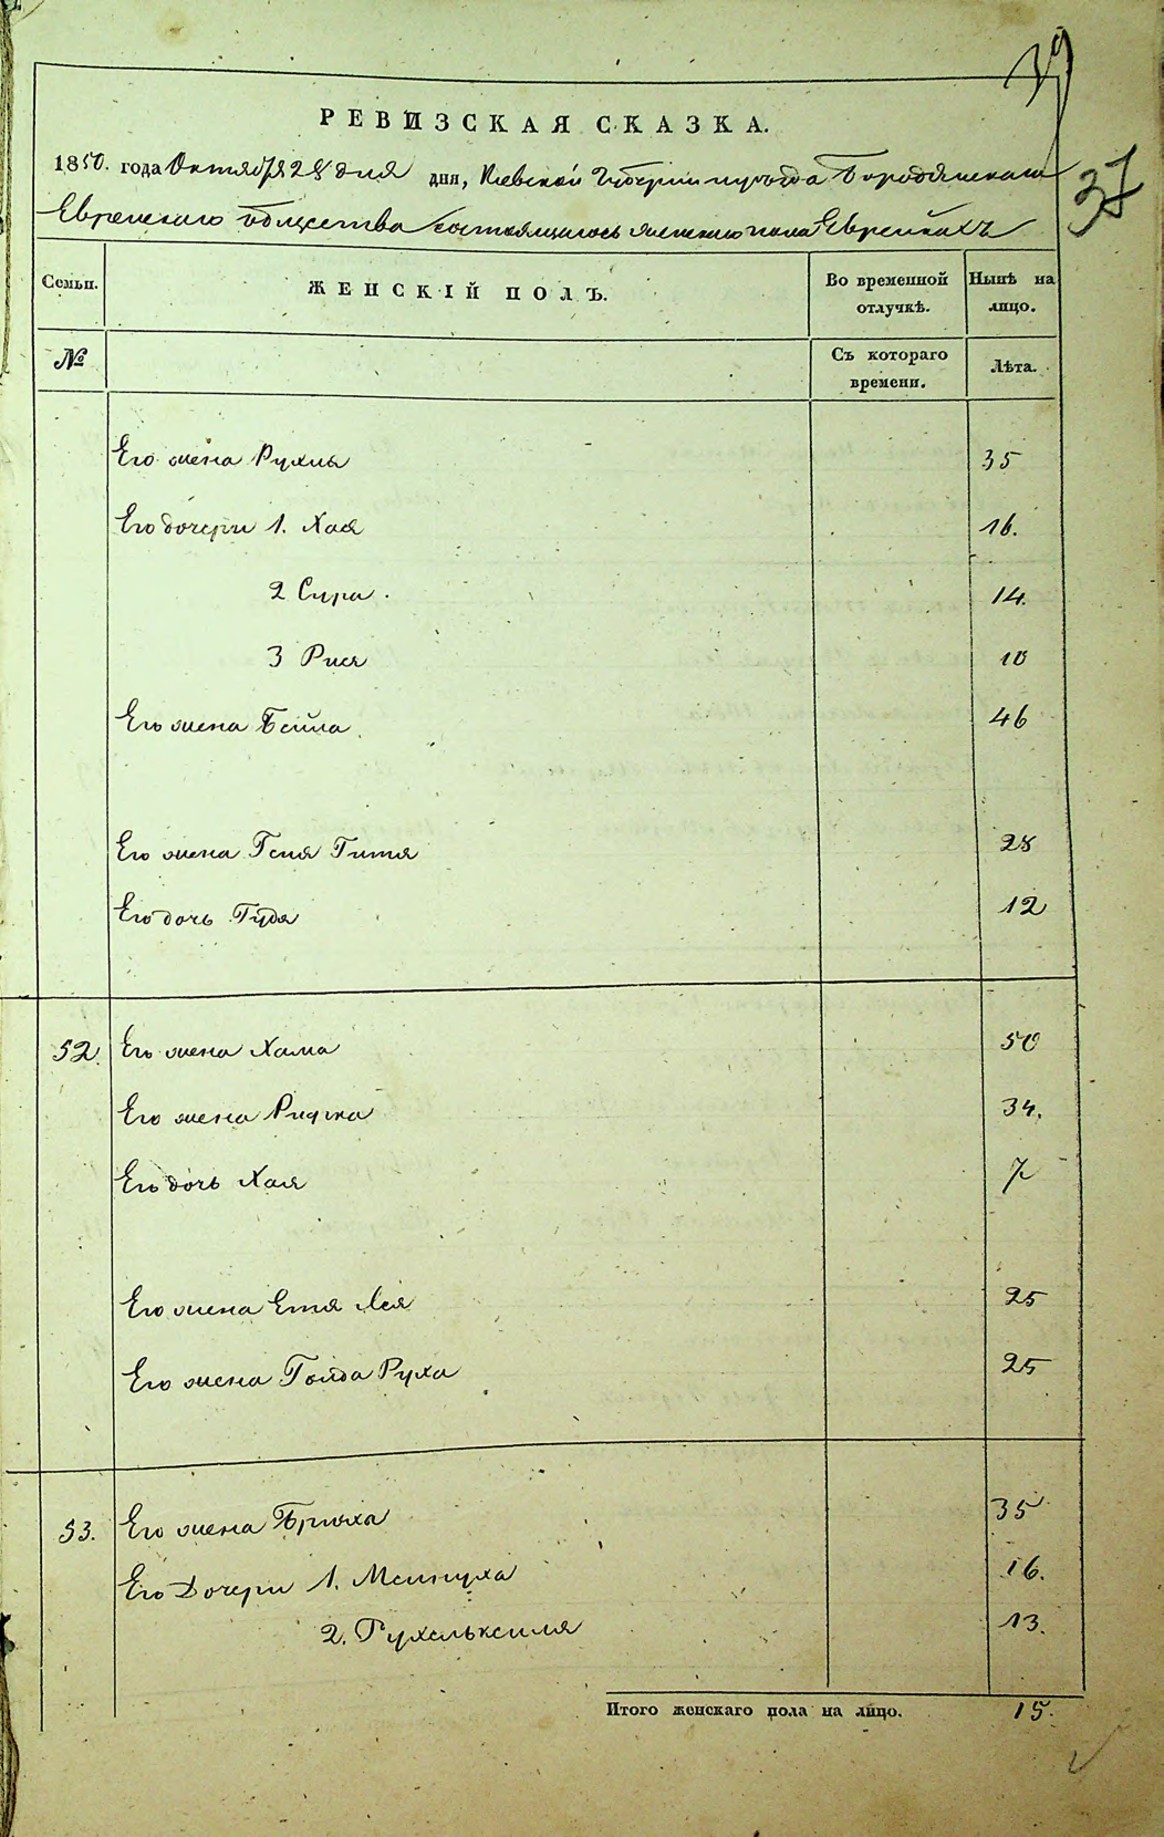 39
РЕВИЗСКАЯ СКАЗКА.
1850. года Октября 28 дня дня, Киевской Губернии Бородянскаго
37
Еврейскаго общества состоящагося женскаго пола Еврейкахъ
Семьи. ЖЕНСКІЙ ПОЛЪ. Во временной отлучкѣ. Нынѣ на лицо.
№ Съ котораго времени. Лѣта.
Его жена Рухля 35
Его дочери 1. Хая 16.
2 Сура. 14.
3 Рися 10
Его жена Бейла 46
Его жена Геня Гитя 28
Его дочь Гудя 12
52. Его жена Хама 50
Его жена Рифка 34.
Его дочь Хая 7
Его жена Етя Лея 25
Его жена Голда Руха 25
53. Его жена Бруха 35
Его Дочери 1. Менуха 16.
2. 13.
Итого женскаго пола на лицо. 15.